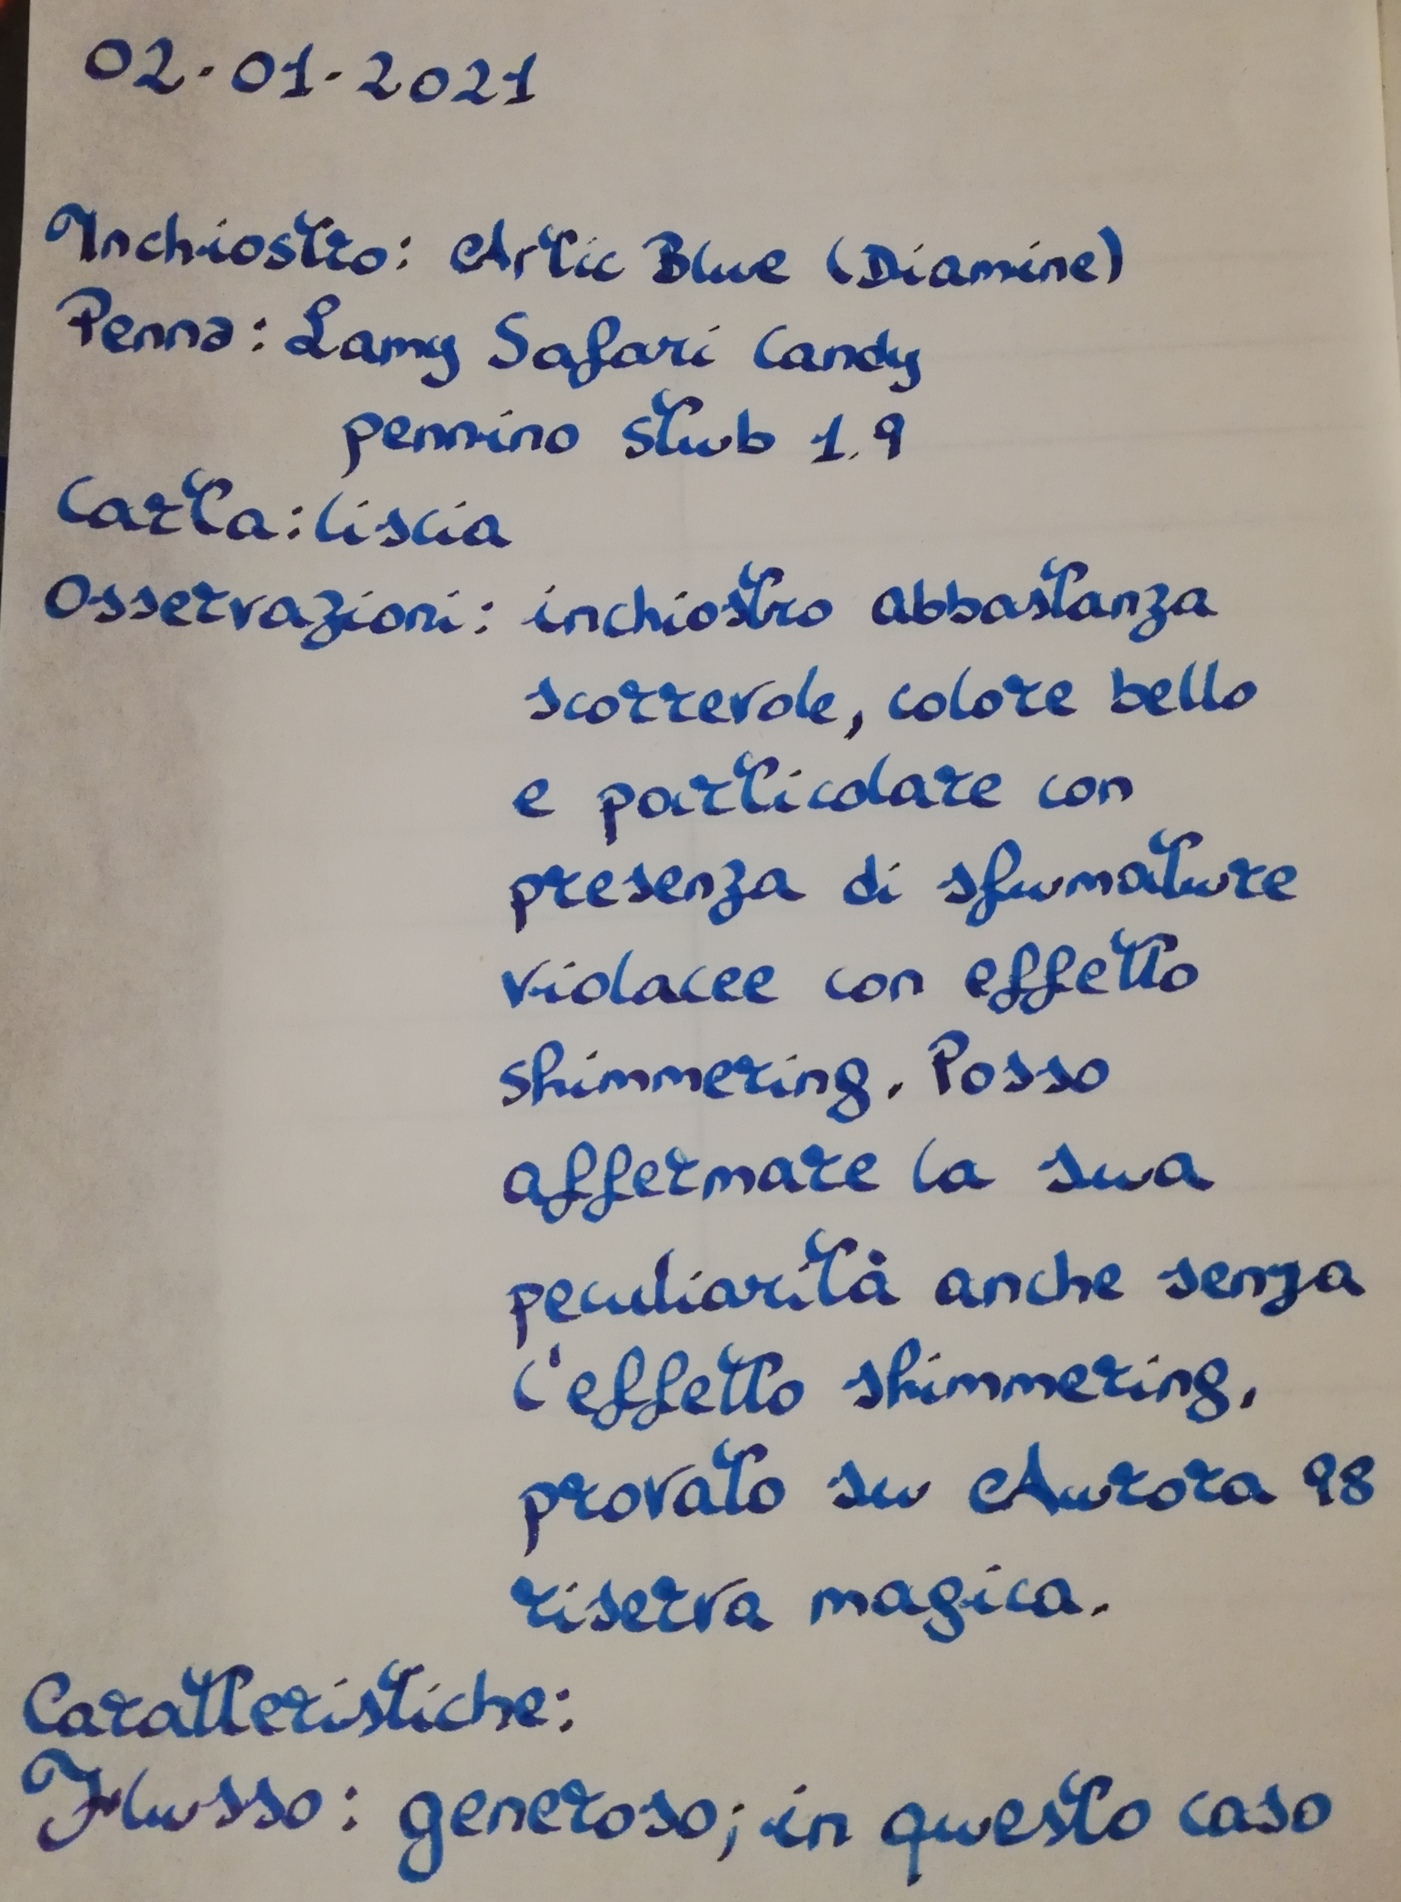 02.01.2021
Inchiostro: Artic Blue (Diamine)
Penna: Lamy Safari Candy
pennino stub 1.9
Carta: liscia
Osservazioni: inchiostro abbastanza
scorrevole, colore bello
e particolare con
presenza di sfumature
violacee con effetto
shimmering. Posso
affermare la sua
peculiarità anche senza
l'effetto shimmering,
provato su Aurora 98
riserva magica.
Caratteristiche:
Flusso: generoso; in questo caso